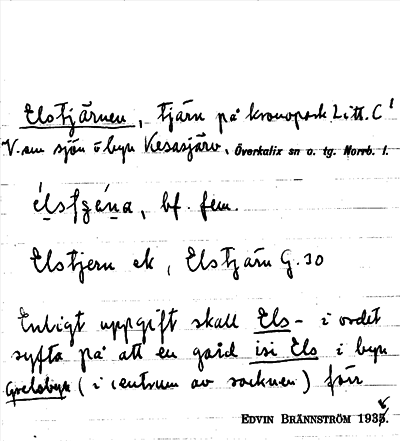 Elstjärnen, tjärn på kronopark Litt. C
V. om sjön o byn Kesasjärv, Överkalix sn o. tg. Norrb. l.
bf. fem.
Elstjern ek, Elstjärn G. 30
Enligt uppgift skall Els- i ordet
syfta på att en gård isi Els i byn
Grelsbyn (i centrum av socknen) förr
EDVIN BRÄNNSTRÖM 193